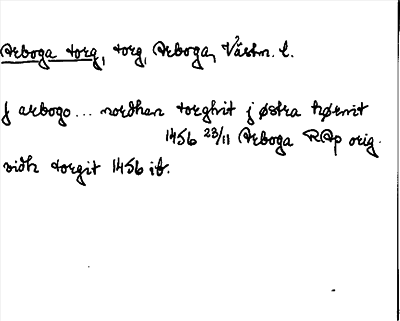 Arboga torg, torg, Arboga, Västm. l.
j arbogo... nordhan torghit j østra hørnit
1456 23/11 Arboga RAp orig.
vidh torgit 1456 ib.